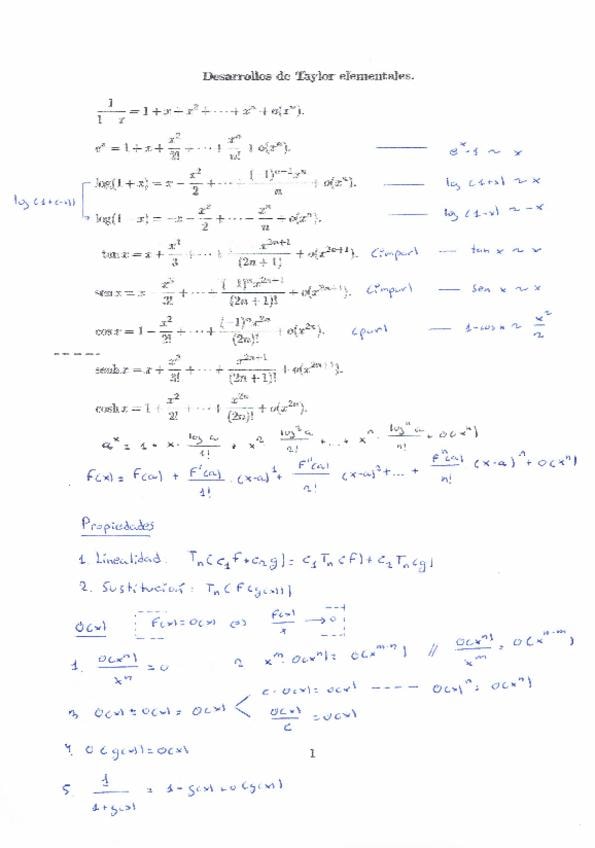 Desarrollos de Taylor elementales.
1/(1-x) = 1 + x + x² + ··· + xⁿ + o(xⁿ).
eˣ = 1 + x + x²/2! + ··· + xⁿ/n! + o(xⁿ). —— eˣ-1 ~ x
log(1+(-x)) log(1 + x) = x - x²/2 + ··· + (-1)ⁿ⁻¹xⁿ/n + o(xⁿ). —— log(1+x) ~ x
log(1 - x) = -x - x²/2 + ··· - xⁿ/n + o(xⁿ). —— log(1-x) ~ -x
tan x = x + x³/3 + ··· + x²ⁿ⁺¹/(2n + 1) + o(x²ⁿ⁺¹). (impar) — tan x ~ x
sen x = x - x³/3! + ··· + /(2n + 1)! + o(x²ⁿ⁺¹). (impar) — sen x ~ x
cos x = 1 - x²/2! + ··· + (-1)ⁿx²ⁿ/(2n)! + o(x²ⁿ). (par) — 1-cos x ~ x²/2
senh x = x + x³/3! + ··· + x²ⁿ⁺¹/(2n + 1)! + o(x²ⁿ⁺¹).
cosh x = 1 + x²/2! + ··· + x²ⁿ/(2n)! + o(x²ⁿ).
aˣ = 1 + x · log a/1! + x² · log²a/2! + ... + xⁿ · logⁿa/n! + o(xⁿ)
F(x) = F(a) + F'(a)/1! · (x-a)¹ + F''(a)/2! (x-a)² + ... + Fⁿ(a)/n! (x-a)ⁿ + o(xⁿ)
Propiedades
1. Linealidad. Tn(c₁f + c₂g) = c₁Tn(f) + c₂Tn(g)
2. Sustitución: Tn(F(g(x)))
o(x) F(x) = o(x) F(x)/x → 0
1. o(xⁿ)/xⁿ = 0 2 xᵐ · o(xⁿ) = // o(xⁿ)/xᵐ = o(xⁿ⁻ᵐ)
3 o(x) ± o(x) = o(x) c · o(x) = o(x) ---- o(x)ⁿ = o(xⁿ)
o(x)/c = o(x)
4. o(g(x)) = o(x)
1
5. 1/(1+g(x)) = 1 - g(x) + o(g(x))